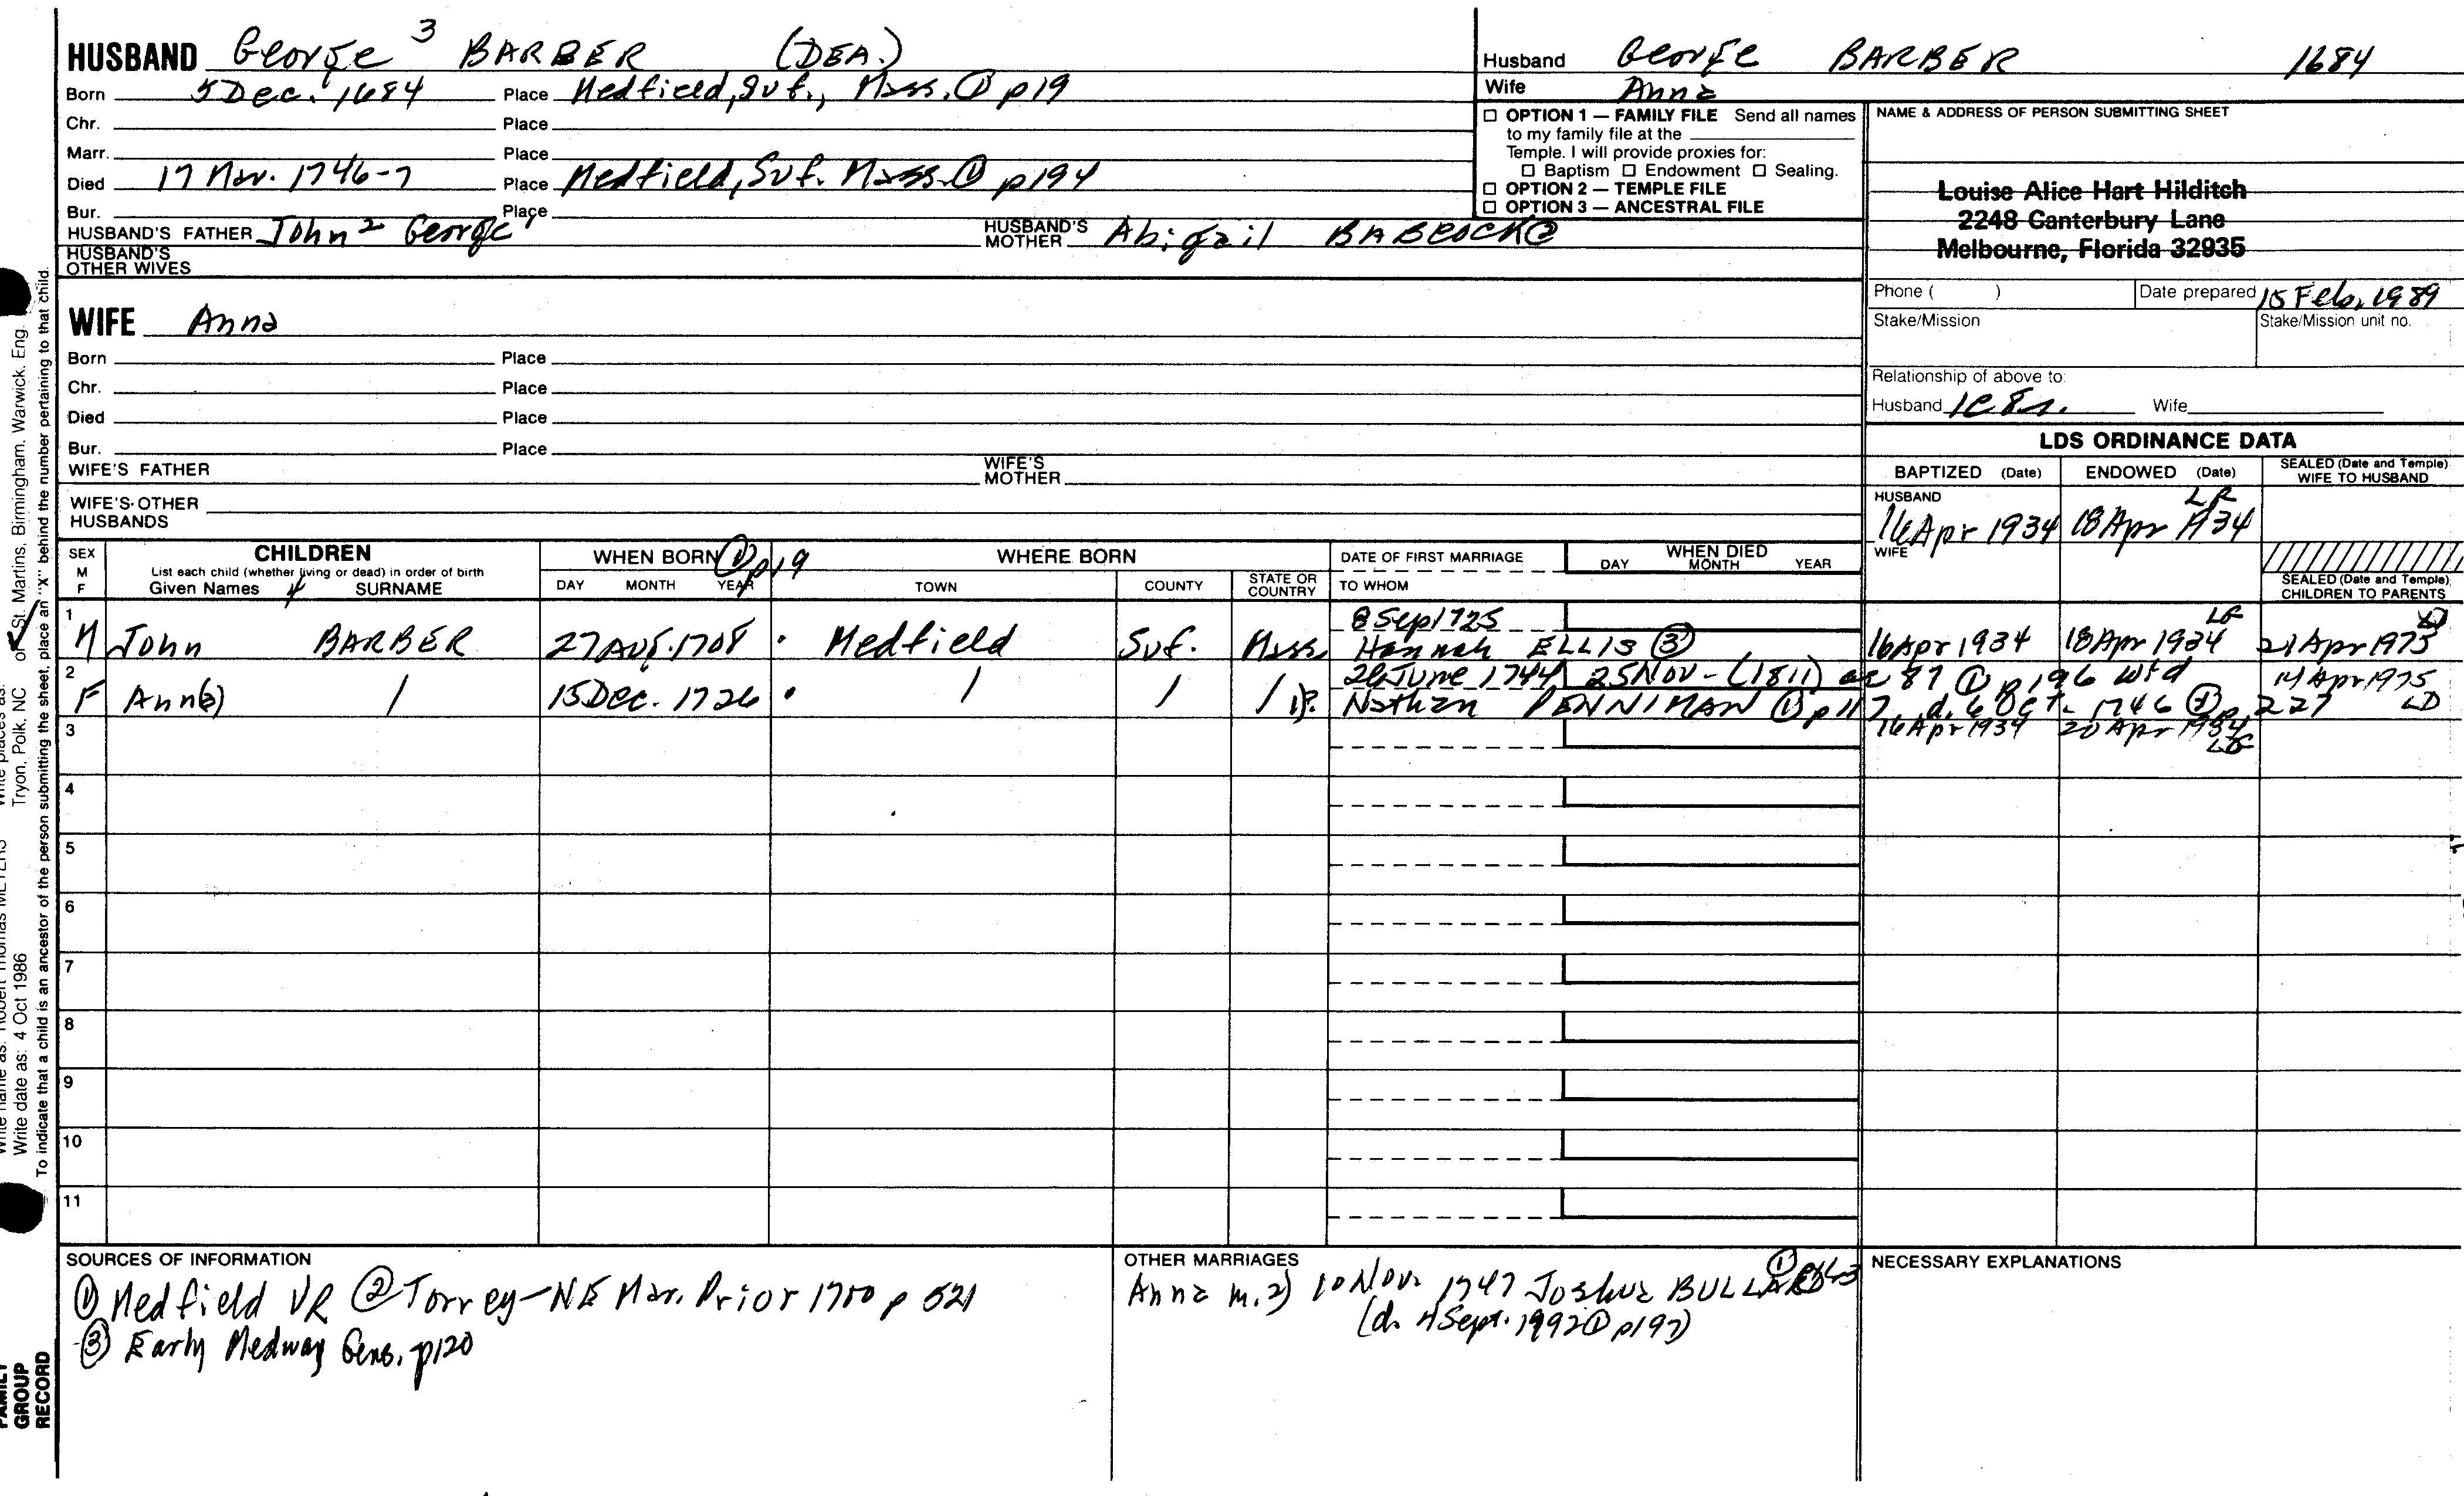 HUSBAND George 3 BARBER (DEA.)
Born 5 Dec. 1684 Place Medfield, Suf., Mass. ① p19
Chr. Place
Marr. Place
Died 17 Mar. 1746-7 Place Medfield, Suf. Mass. ① p194
Bur. Place
HUSBAND'S FATHER John 2 George 1 HUSBAND'S MOTHER Abigail BABCOCK ②
HUSBAND'S OTHER WIVES
WIFE Anna
Born Place
Chr. Place
Died Place
Bur. Place
WIFE'S FATHER WIFE'S MOTHER
WIFE'S OTHER HUSBANDS
Husband George BARBER 1684
Wife Anna
☐ OPTION 1 — FAMILY FILE Send all names
to my family file at the
Temple. I will provide proxies for:
☐ Baptism ☐ Endowment ☐ Sealing.
☐ OPTION 2 — TEMPLE FILE
☐ OPTION 3 — ANCESTRAL FILE
NAME & ADDRESS OF PERSON SUBMITTING SHEET
Louise Alice Hart Hilditch
2248 Canterbury Lane
Melbourne, Florida 32935
Phone ( ) Date prepared 15 Feb. 1989
Stake/Mission Stake/Mission unit no.
Relationship of above to:
Husband Wife
LDS ORDINANCE DATA
BAPTIZED (Date) ENDOWED (Date) SEALED (Date and Temple) WIFE TO HUSBAND
HUSBAND
16 Apr 1934 18 Apr 1934
WIFE
SEALED (Date and Temple) CHILDREN TO PARENTS
SEX M F
CHILDREN
List each child (whether living or dead) in order of birth
Given Names 4 SURNAME
WHEN BORN ① p19
DAY MONTH YEAR
WHERE BORN
TOWN COUNTY STATE OR COUNTRY
DATE OF FIRST MARRIAGE
TO WHOM
WHEN DIED
DAY MONTH YEAR
1 8 Sep 1725
M John BARBER 27 Aug. 1708 Medfield Suf. Mass. Hannah ELLIS ③ 16 Apr 1934 18 Apr 1934 21 Apr 1975
2 26 June 1744 25 Nov - (1811) ae 87 ① p 196 wid 14 Apr 1975
F Ann(a) / 15 Dec. 1726 / / / Nathan PENNIMAN ① p 117 d. 6 Oct. 1746 ① p 227 LD
3 16 Apr 1934 20 Apr 1934
4
5
6
7
8
9
10
11
SOURCES OF INFORMATION
① Medfield VR ② Torrey-NE Mar. Prior 1700 p 521
③ Early Medway Gens. p120
OTHER MARRIAGES
Anna m. 2) 10 Nov. 1747 Joshua BULLARD ①
(d. 4 Sept. 1992 ① p197)
NECESSARY EXPLANATIONS
Tryon, Polk, NC of St. Martins, Birmingham, Warwick, Eng.
Write date as: 4 Oct 1986
To indicate that a child is an ancestor of the person submitting the sheet, place an "X" behind the number pertaining to that child.
FAMILY
GROUP
RECORD